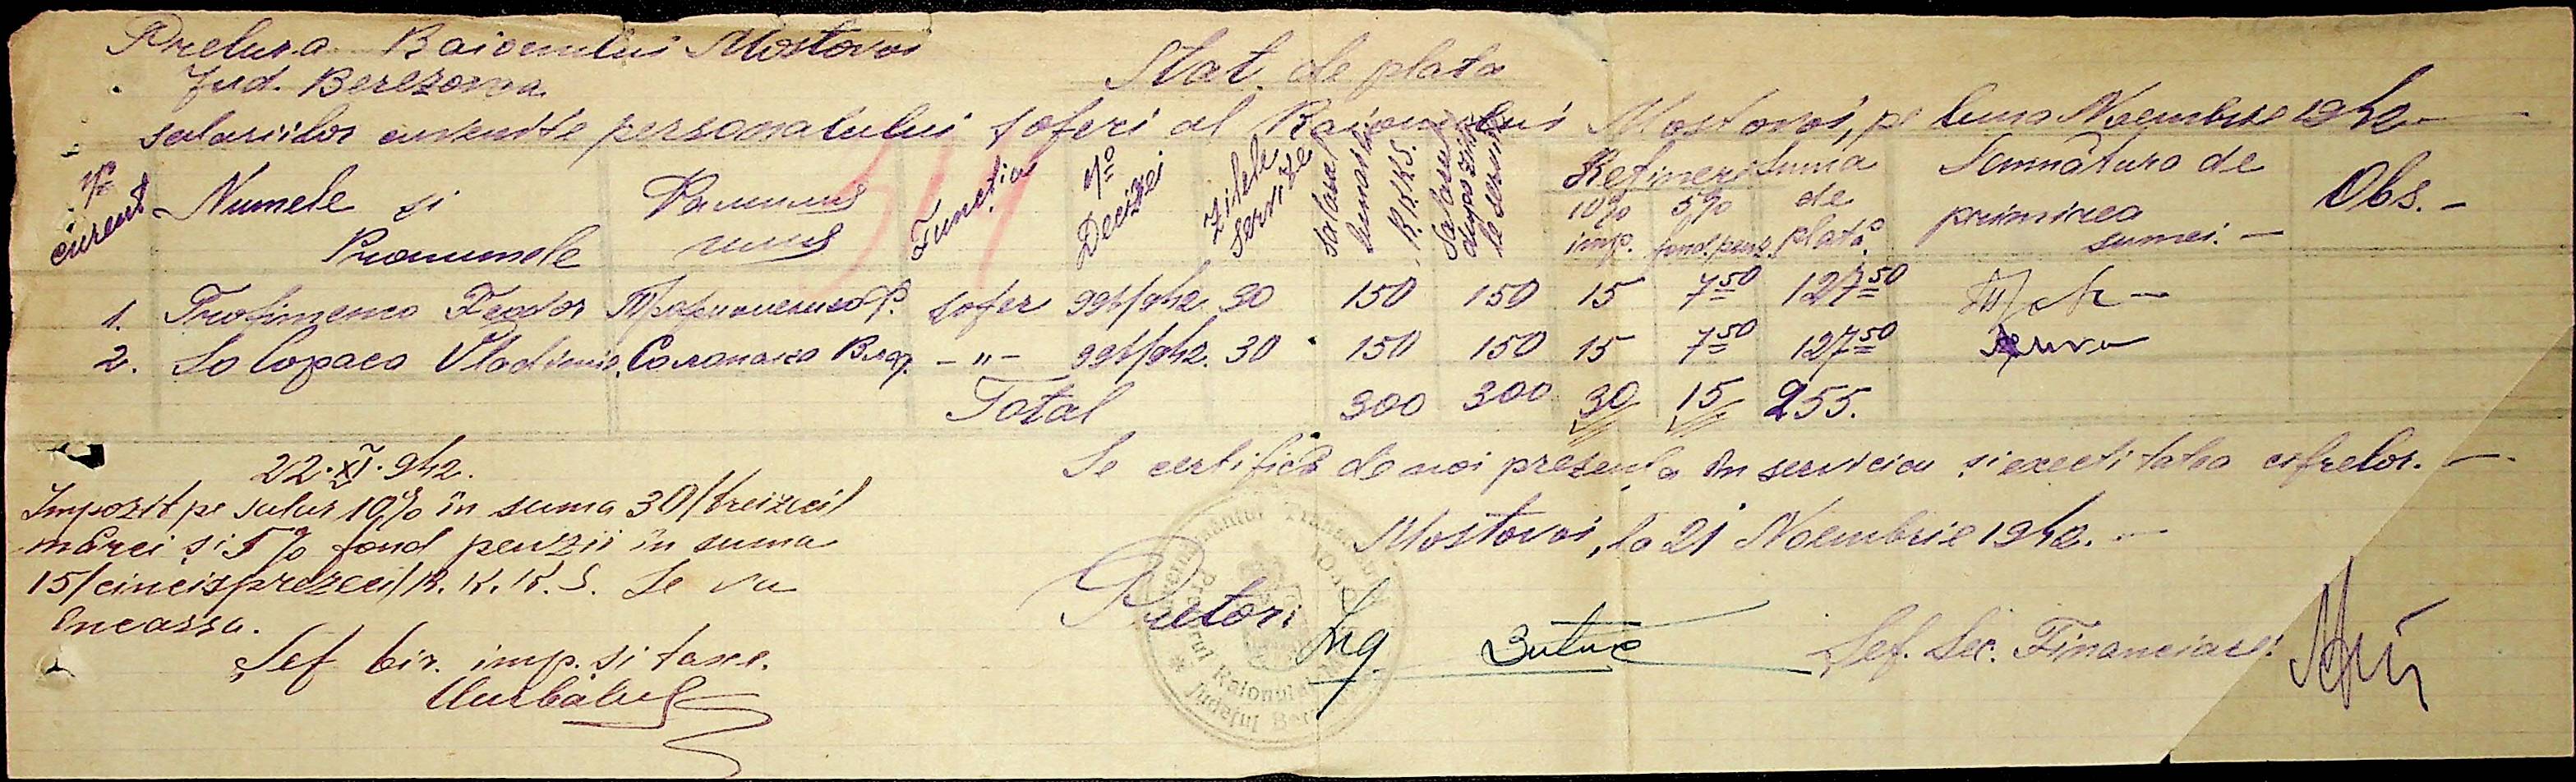 Pretura Raionului Mostovoi
Jud. Berezovca
Stat de plata
salariilor cuvenite personalului șoferi al Raionului Mostovoi, pe luna Noembrie 1942
No curent
Numele si Pronumele
Functia
No Deciziei
Zilele servite
Salarul lunar in R.K.K.S.
Salarul dupa zilele servite
Retineri
10% imp.
5% fond. penz.
Suma de plată
Semnătura de primirea sumei. —
Obs. —
1. Trofimenco Feodor Трофименко Ф. șofer 994/942 30 150 150 15 7 50 127 50
2. Solopaco Vladimir Солопако Влад. — " — 994/942. 30 150 150 15 7 50 127 50
Total 300 300 30 15 255.
Se certifică de noi prezența în serviciu și exactitatea cifrelor. —
Mostovoi, la 21 Noembrie 1942. —
Pretor: Ing.
Șef. Sec. Financiare:
22. XI. 942.
Impozit pe salar 10% în suma 30/treizeci/
mărci și 5% fond penzii în suma
15/cincisprezeci/R.K.K.S. Se va
încassa.
Șef bir. imp. si taxe.
Raionului
Județul